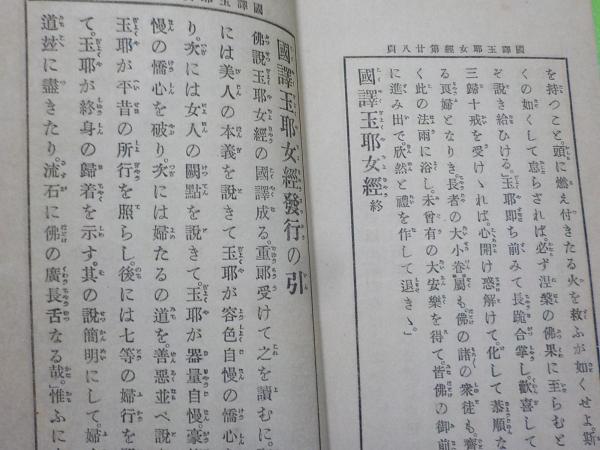 國譯玉耶女經第廿八頁
を持つこと。頭に燃え付きたる火を救ふが如くせよ。斯
くの如くして怠らざれば必ず涅槃の佛果に至らむと
ぞ説き給ひける。玉耶即ち前みて長跪合掌し。歡喜して
三歸十戒を受けゝれば。心開け惑解けて。化して恭順な
る貞婦となりき。長者の大小眷屬も。佛の諸の衆徒も。齊
く此の法雨に浴し。未曾有の大安樂を得て。皆佛の御前
に進み出で。欣然と禮を作して退きゝ。
國譯玉耶女經 終
國譯玉耶女
國譯玉耶女經發行の引
佛説玉耶女經の國譯成る。重郎受けて之を讀むに。
には美人の本義を説きて玉耶が容色自慢の憍心
り。次には女人の闕點を説きて。玉耶が器量自慢。豪
慢の憍心を破り。次には婦たるの道を。善惡並べ説
玉耶が平昔の所行を照らし。後には七等の婦行を
て。玉耶が終身の歸着を示す。其の説簡明にして。婦
道玆に盡きたり。流石に佛の廣長舌なる哉。惟ふに